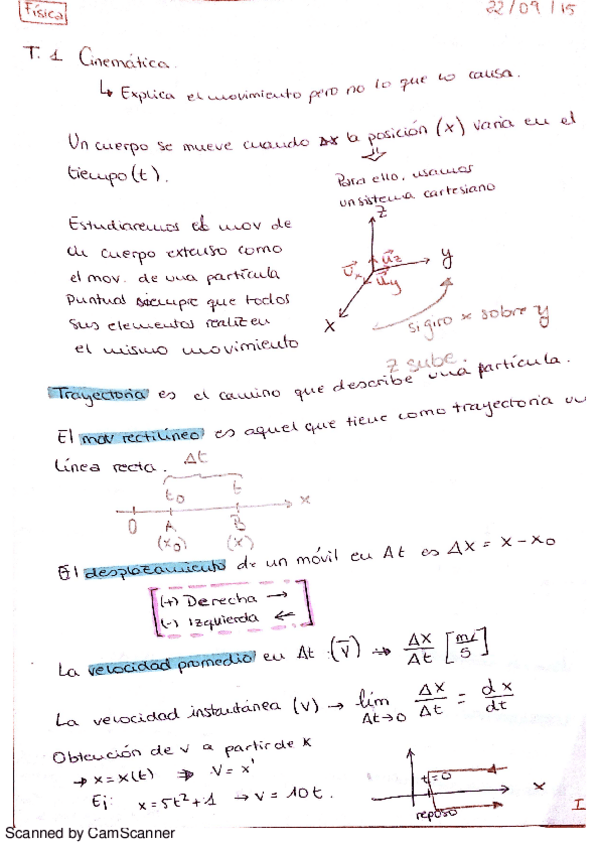 Física
22/09/15
T. 1 Cinemática.
↳ Explica el movimiento pero no lo que lo causa.
Un cuerpo se mueve cuando la posición (x) varia en el
tiempo (t).
Para ello, usamos
un sistema cartesiano
Estudiaremos el mov de
un cuerpo extenso como
el mov. de una partícula
puntual siempre que todos
sus elementos realizen
el mismo movimiento
z
y
x
si giro x sobre y
z sube.
Trayectoria es el camino que describe una partícula.
El mov rectilíneo es aquel que tiene como trayectoria
línea recta.
Δt
t₀ t
x
0 A B
(x₀) (x)
El desplazamiento de un móvil en Δt es Δx = x - x₀
(+) Derecha →
(-) Izquierda ←
La velocidad promedio en Δt (v̅) → Δx/Δt [m/s]
La velocidad instantánea (v) → lím Δt→0 Δx/Δt = dx/dt
Obtención de v a partir de x
→ x = x(t) ⇒ v = x'
Ej: x = 5t² + 1 → v = 10t.
t=0
x
reposo
Scanned by CamScanner